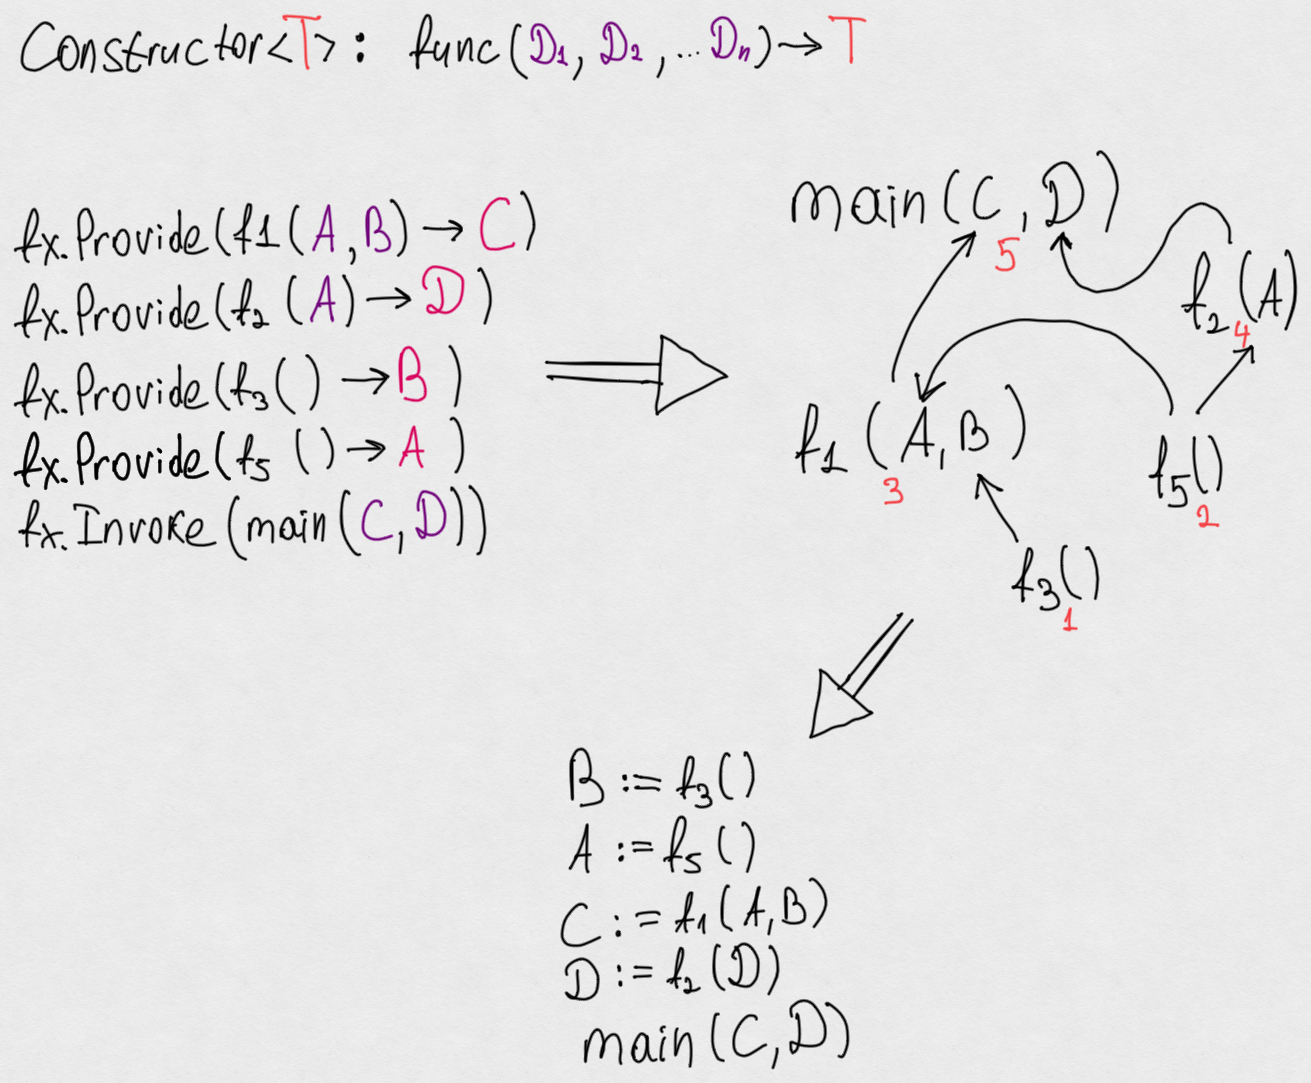 Constructor<T>: func(D1, D2, ... Dn)→T
fx.Provide(f1(A,B)→C)
fx.Provide(f2(A)→D)
fx.Provide(f3()→B)
fx.Provide(f5()→A)
fx.Invoke(main(C,D))
main(C,D)
5
f2(A)
4
f1(A,B)
3
f5()
2
f3()
1
B := f3()
A := f5()
C := f1(A,B)
D := f2(D)
main(C,D)